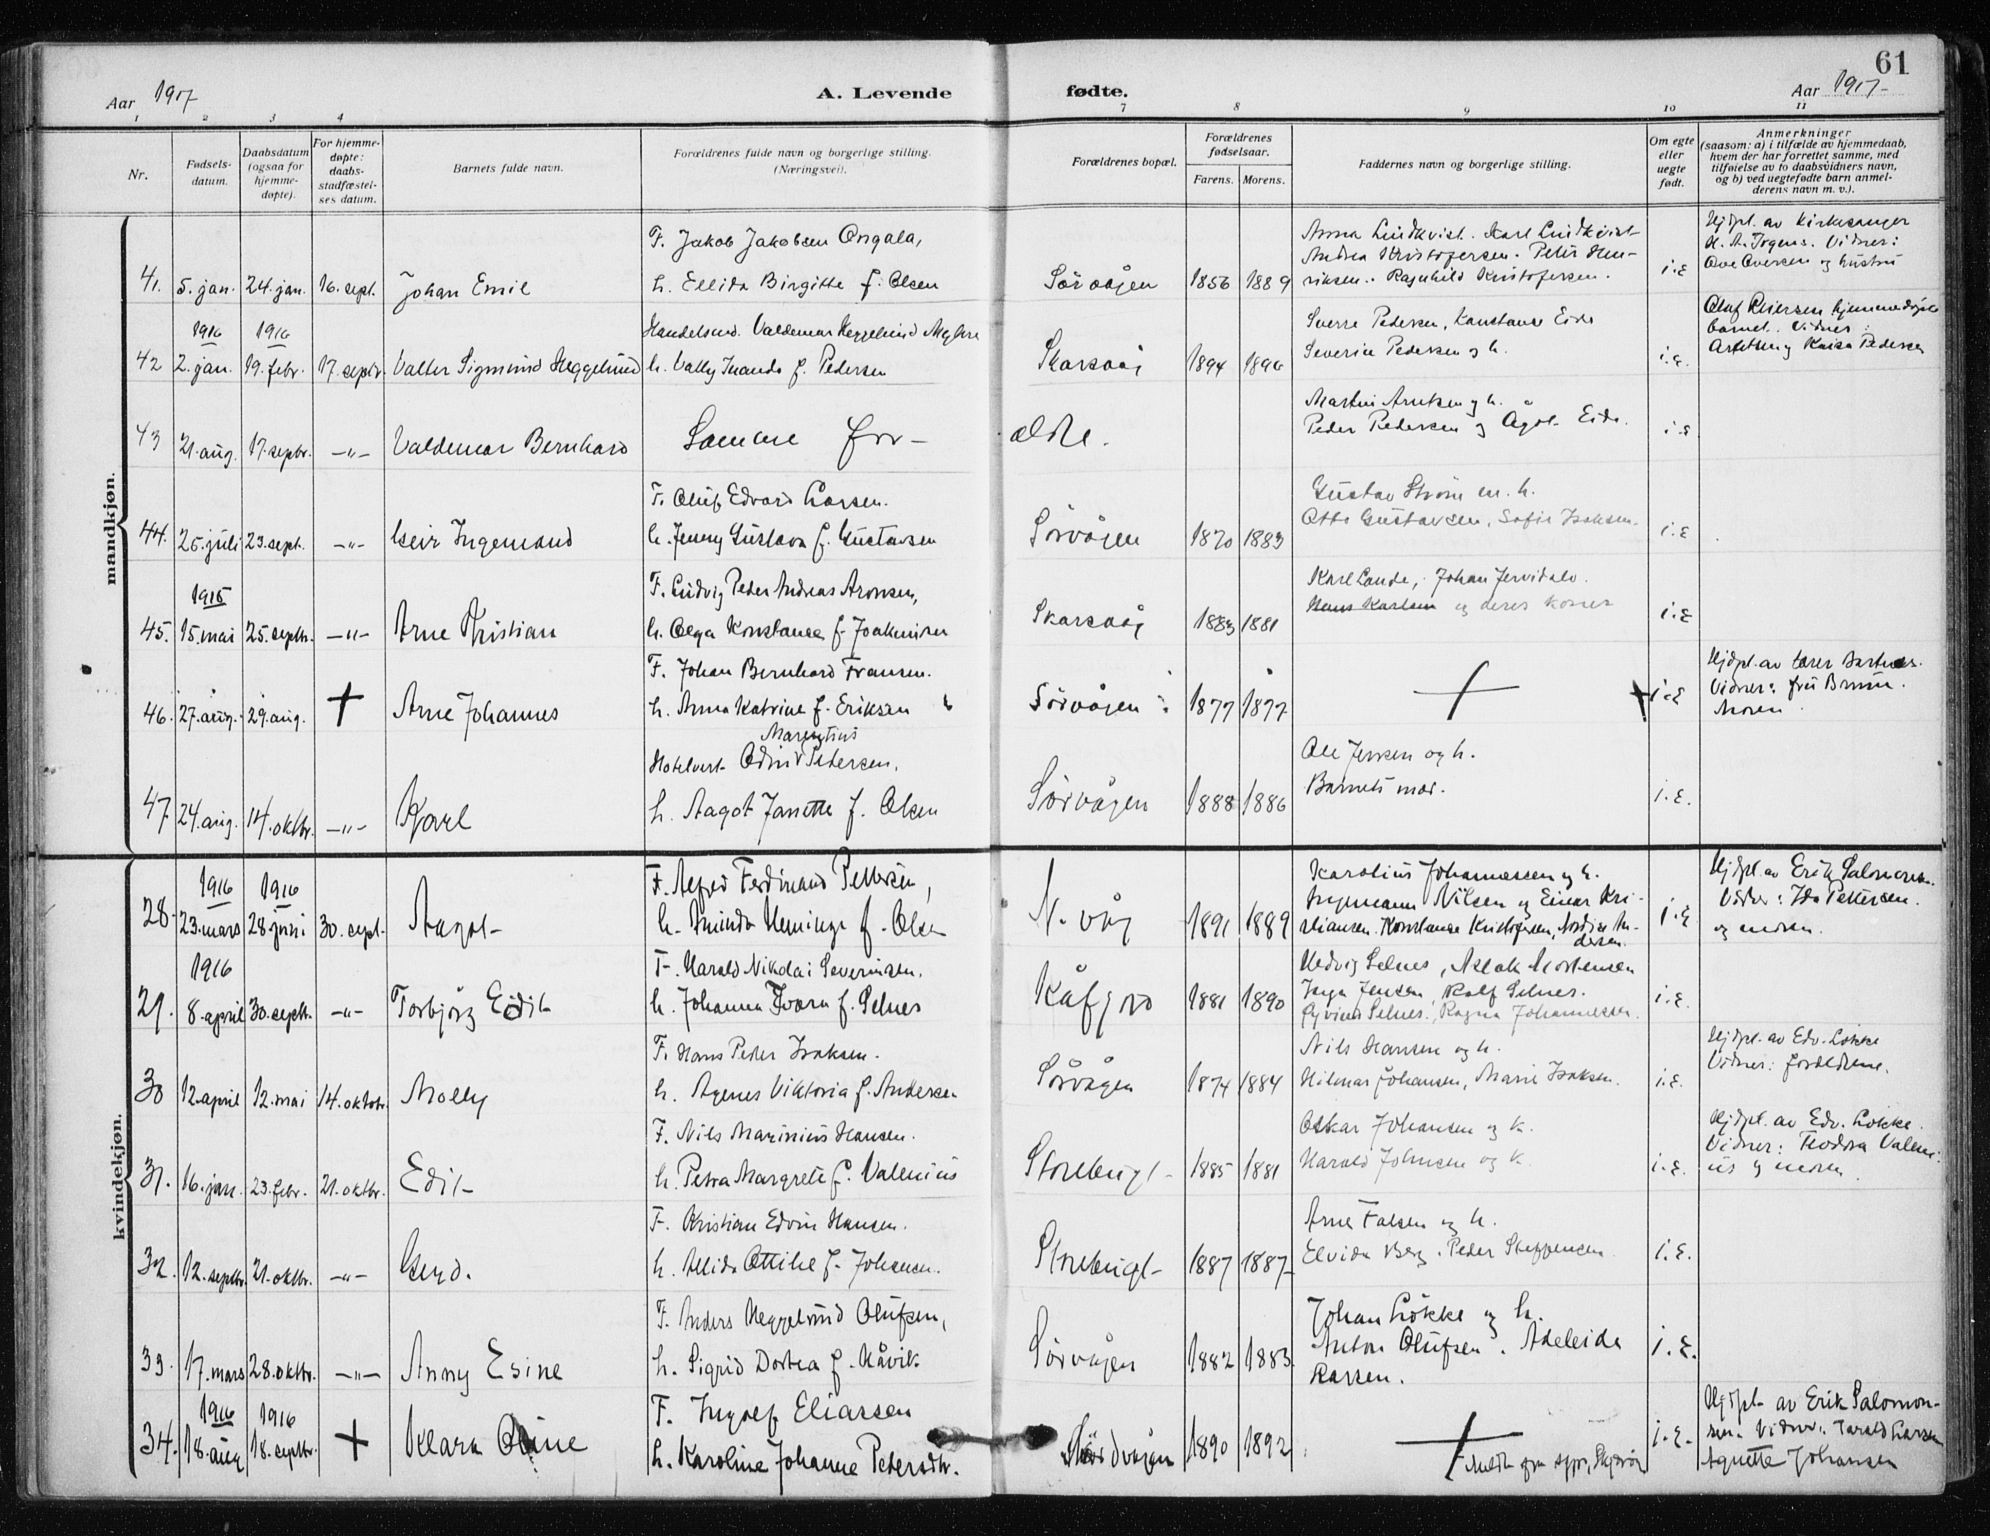 61
Aar 1917
A. Levende fødte.
Aar 1917
1 2 3 4 7 8 9 10 11
Nr.
Fødsels-
datum.
Daabsdatum
(ogsaa for
hjemme-
døpte).
For hjemme-
døpte:
daabs-
stadfæstel-
ses datum.
Barnets fulde navn.
Forældrenes fulde navn og borgerlige stilling.
(Næringsvei).
Forældrenes bopæl.
Forældrenes
fødselsaar.
Farens. Morens.
Faddernes navn og borgerlige stilling.
Om egte
eller
uegte
født.
Anmerkninger
(saasom: a) i tilfælde av hjemmedaab,
hvem der har forrettet samme, med
tilføielse av to daabsvidners navn,
og b) ved uegtefødte barn anmel-
derens navn m. v.).
mandkjøn.
F. Jakob Jakobsen Ongala,
41. 5. jan. 24. jan. 16. sept. Johan Emil
h. Ellida Birgitte f. Olsen
Sörvågen 1856 1889
Anna Lindkvist. Karl Lindkvist
Andrea Kristofersen. Peter Hen-
riksen. Ragnhild Kristofersen.
i.E
Hjdpt. av Kirkesanger
Vidner:
Ove Oversen og hustru
1916 1916
42 2. jan. 19. febr. 17. septbr. Valter Sigmund Heggelund
Handelsmd. Valdemar Heggelund
h. Vally f. Pedersen
Skarsvåg 1894 1896
Sverre Pedersen, Konstanse Eide
Severin Pedersen og h.
i.e.
barnet. Vidner:
og Kaisa Pedersen
43 21. aug. 17. septbr. -"- Valdemar Bernhard
Samme for-
ældre.
Martin Arntsen og h.
Peder Pedersen og Eide.
i.E
F. Oluf Edvard Larsen.
44. 25. juli 23. sept. -"- Geir Ingemand
h. Jenny Gustava f. Gustavsen
Sörvågen 1870 1883
Gustav Ström m. h.
Otto Gustavsen, Sofie Isaksen.
i.E
1915
F. Ludvig Peder Andreas Aronsen,
45. 15. mai 25. septbr. -"- Arne Kristian
h. Olga Konstanse f. Joakimsen
Skarsvåg 1883 1881
Karl Lande, Johan
Hans Karlsen og deres koner
i.E
F. Johan Bernhard Fransen.
46. 27. aug. 29. aug. + Arne Johannes
h. Anna Katrine f. Eriksen
Sörvågen 1877 1877
+
i.E
Hjdpt. av lærer
Vidner: fru Bruun.
Moren.
Marentius
Hotelvert Odin Petersen.
47 24. aug. 14. oktbr. -"- Karl
h. Aagot Janette f. Olsen
Sörvågen 1888 1886
Ole Jensen og h.
Barnets mor.
i.E.
kvindekjøn.
1916 1916
F. Alfred Ferdinand Pettersen,
28. 23. mars 28 juni 30. sept. Aagot
h. Aminda Heminge f. Olsen
N. våg 1891 1889
Karolius Johannessen og h.
Ingemann Nilsen og Einar Kri-
stiansen. Konstanse Kristofersen, An-
dersen.
i.E
Hjdpt. av Erik Salomonsen.
Vidner: Ida Pettersen.
og moren.
1916
F. Harald Nikolai Severinsen.
29. 8. april 30. septbr. -"- Torbjörg Edit
h. Johanna f. Selnes
Kåfjord 1881 1890
Hedvig Selnes, Aslak Mortensen
Inga Jensen, Rolf Selnes.
Eyvind Selnes, Ragna Johannessen.
i.E.
F. Hans Peder Isaksen.
30 12. april 12. mai 14. oktobr. Molly
h. Agenes Viktoria f. Andersen
Sörvågen 1874 1884
Nils Hansen og h.
Hilmar Johansen, Marie Isaksen.
i.E.
Hjdpt. av Edv. Lökke
Vidner: forældrene.
F. Nils Marinius Hansen.
31. 16. jan. 23. febr. 21. oktbr. Edit
h. Petra Margrete f. Valenius
Storebugt 1885 1881
Oskar Johansen og h.
Harald Johnsen og h.
i.E.
Hjdpt. av Edv. Lökke.
Vidner: Teodora Valeni-
us og moren.
F. Kristian Edvin Hansen.
32. 12. septbr. 21. oktbr. -"- Gerd.
h. Allida Ottilie f. Johansen.
Storebugt 1887 1887
Arne Falsen og h.
Elvida Berg. Peder Steffensen.
i.E.
F. Anders Heggelund Olufsen,
33. 17. mars 28. oktbr. -"- Anny Esine
h. Sigrid Dortea f. Håvik
Sörvågen 1882 1883
Johan Lökke og h.
Anton Olufsen. Adeleide
Larsen.
i.E.
1916 1916
F. Ingolf Eliassen
34. 18. aug 18. septbr. + Klara Oline
h. Karoline Johanne Petersdtr.
1890 1892
+
i.E.
Hjdpt. av Erik Salomon-
sen. Vidner: Tarald Larsen
Agnette Johansen